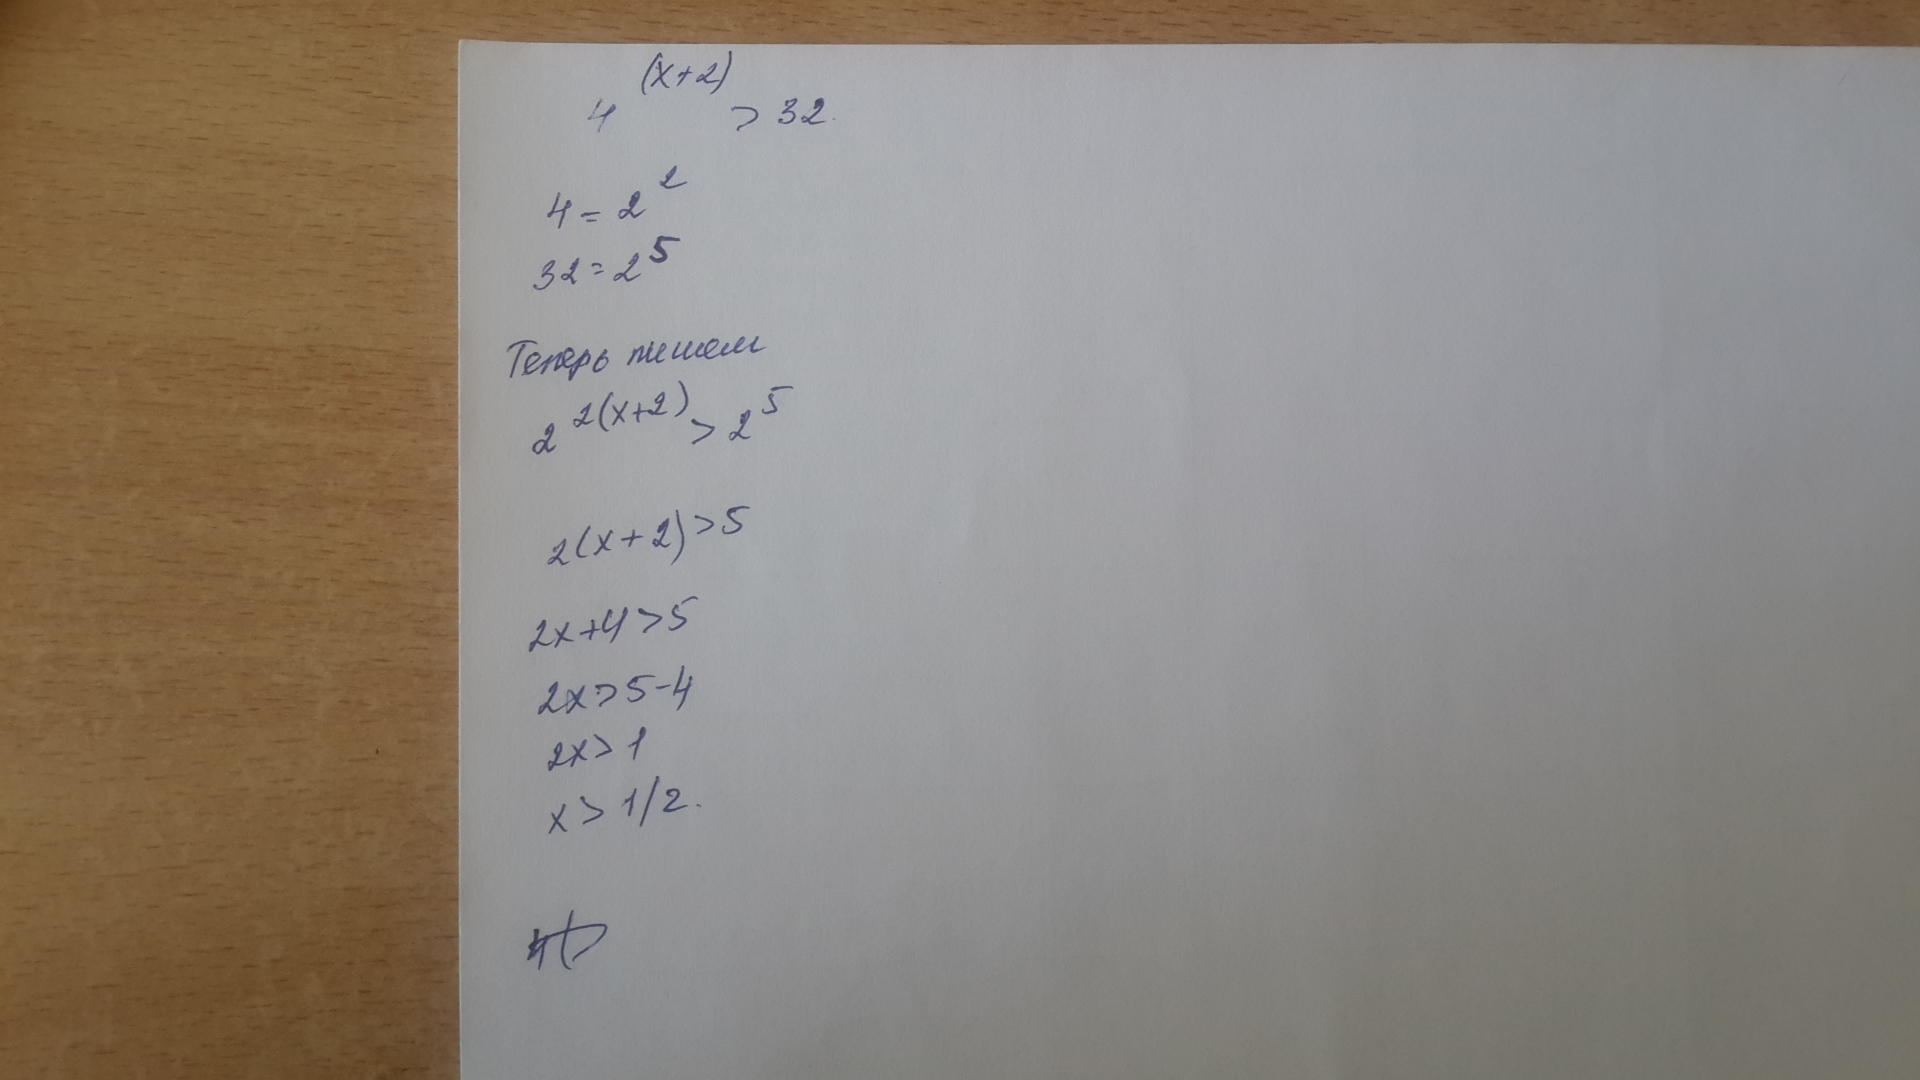 4^(x+2) > 32.
4 = 2^2
32 = 2^5
Теперь пишем
2^2(x+2) > 2^5
2(x+2) > 5
2x+4 > 5
2x > 5-4
2x > 1
x > 1/2.